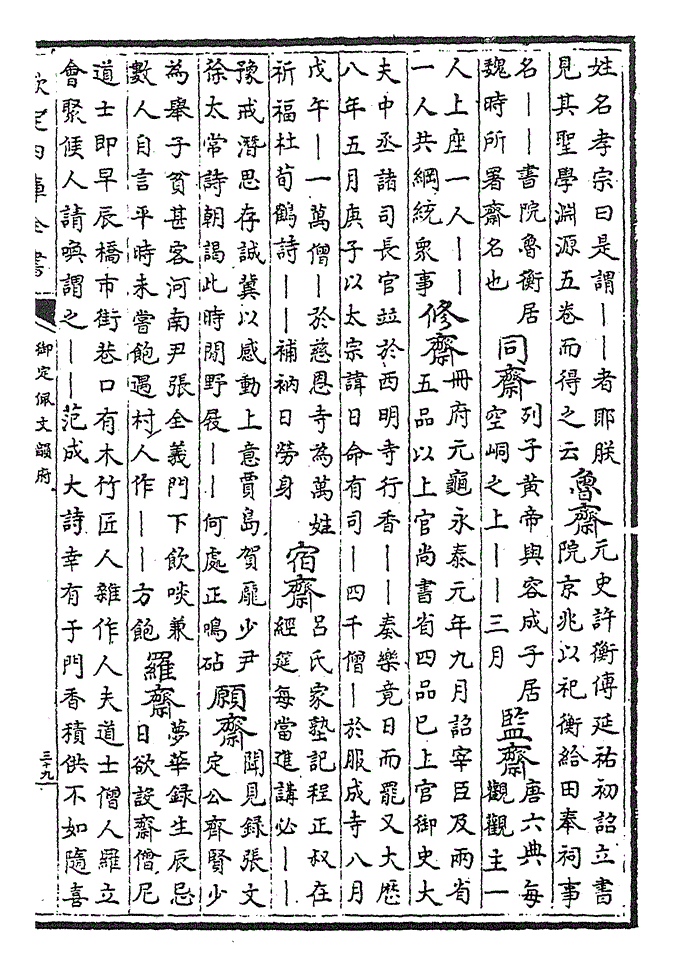 姓名孝宗曰是謂——者耶朕
見其聖學淵源五卷而得之云
魯齋
元史許衡傳延祐初詔立書
院京兆以祀衡給田奉祠事
名——書院魯衡居
魏時所署齋名也
同齋
列子黄帝與容成子居
空峒之上——三月
監齋
唐六典每
觀觀主一
人上座一人——
一人共綱統衆事
修齋
冊府元龜永泰元年九月詔宰臣及兩省
五品以上官尚書省四品已上官御史大
夫中丞諸司長官竝於西明寺行香——奏樂竟日而罷又大歷
八年五月庚子以太宗諱日命有司—四千僧—於服成寺八月
戊午—一萬僧—於慈恩寺為萬姓
祈福杜荀鶴詩——補衲日勞身
宿齋
吕氏家塾記程正叔在
經筵每當進講必——
豫戒潛思存誠冀以感動上意賈島賀龎少尹
徐太常詩朝謁此時閒野屐——何處正鳴砧
願齋
聞見録張文
定公齊賢少
為舉子貧甚客河南尹張全義門下飲啖兼
數人自言平時未嘗飽遇村人作——方飽
羅齋
夢華録生辰忌
日欲設齋僧尼
道士即早辰橋市街巷口有木竹匠人雜作人夫道士僧人羅立
會聚候人請喚謂之——范成大詩幸有子門香積供不如隨喜
欽定四庫全書
御定佩文韻府
三十九